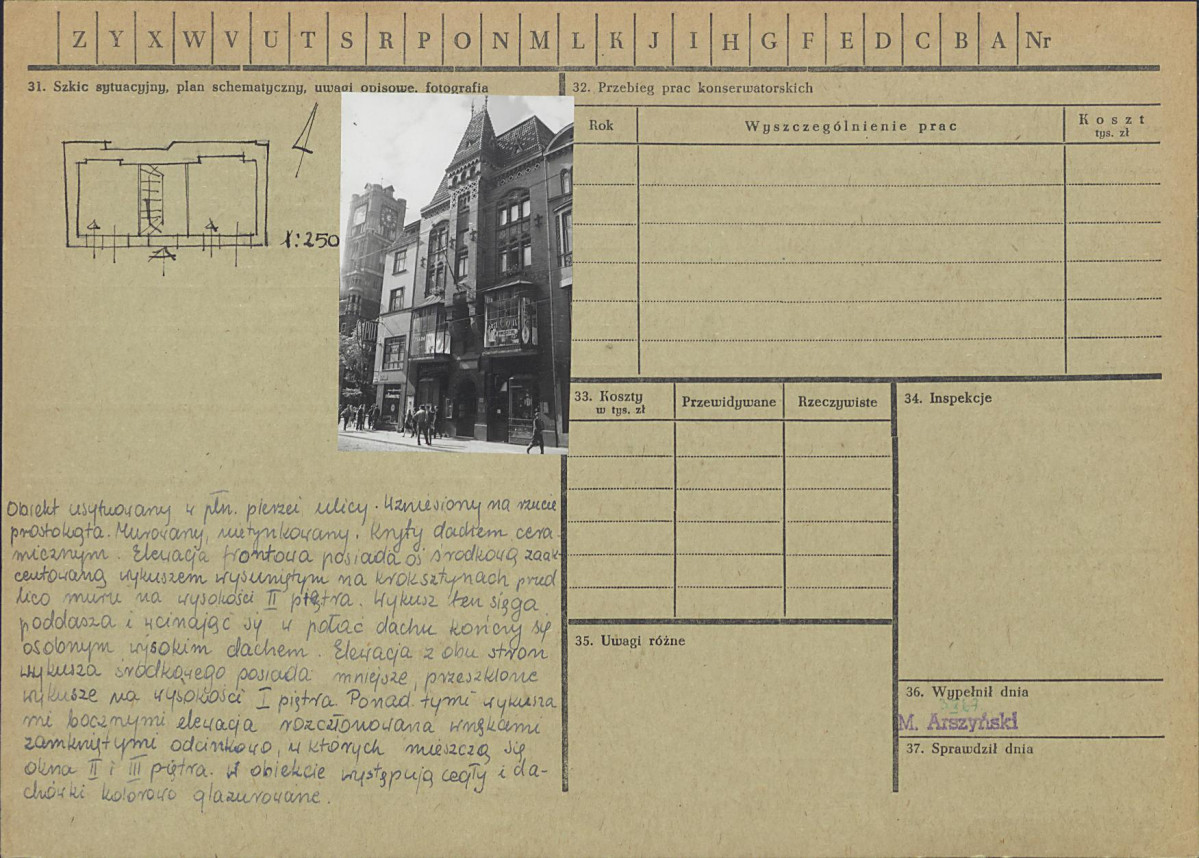 Z Y X W V U T S R P O N M L K J I H G F E D C B A Nr
31. Szkic sytuacyjny, plan schematyczny, uwagi opisowe, fotografia
1:250
Obiekt usytuowany w płn. pierzei ulicy. Wzniesiony na rzucie
prostokąta. Murowany, nietynkowany. Kryty dachem cera-
micznym. Elewacja frontowa posiada oś środkową zaak-
centowaną wykuszem wysuniętym na kroksztynach przed
lico muru na wysokości II piętra. Wykusz ten sięga
poddasza i wcinając się w połać dachu kończy się
osobnym wysokim dachem. Elewacja z obu stron
wykusza środkowego posiada mniejsze, przeszklone
wykusze na wysokości I piętra. Ponad tymi wykusza
mi bocznymi elewacja rozczłonowana wnękami
zamkniętymi odcinkowo, w których mieszczą się
okna II i III piętra. W obiekcie występują cegły i da-
chówki kolorowo glazurowane.
32. Przebieg prac konserwatorskich
Rok
Wyszczególnienie prac
Koszt
tys. zł
33. Koszty
w tys. zł
Przewidywane
Rzeczywiste
34. Inspekcje
35. Uwagi różne
36. Wypełnił dnia
M. Arszyński
37. Sprawdził dnia